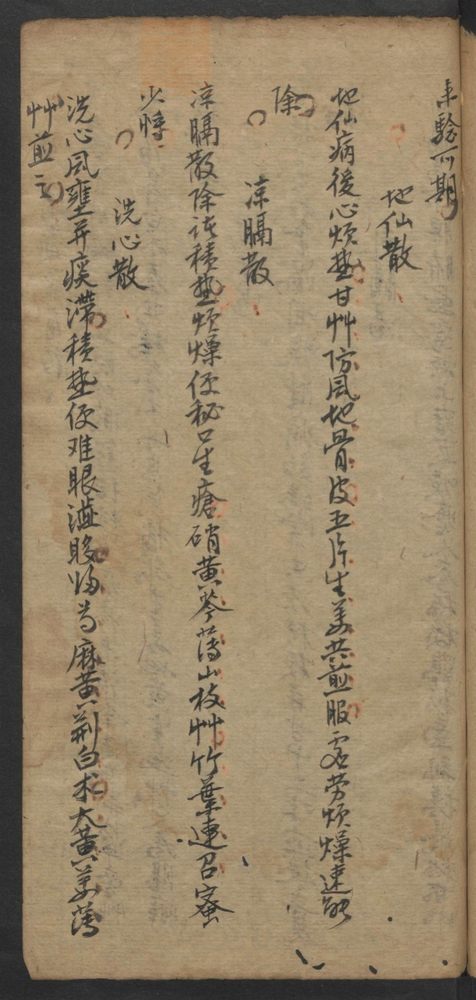 未驗可期
地仙散
地仙病後心煩熱甘艸防風地骨皮五片生姜共煎服虛劳煩燥速能
除
凉膈散
凉膈散除諸積熱煩燥便秘口生瘡硝黃芩薄山枝艸竹葉連召蜜
少時
洗心散
洗心風壅并痰滯積熱便难眼澁眵歸芍麻黃荆白术大黃姜薄
艸煎